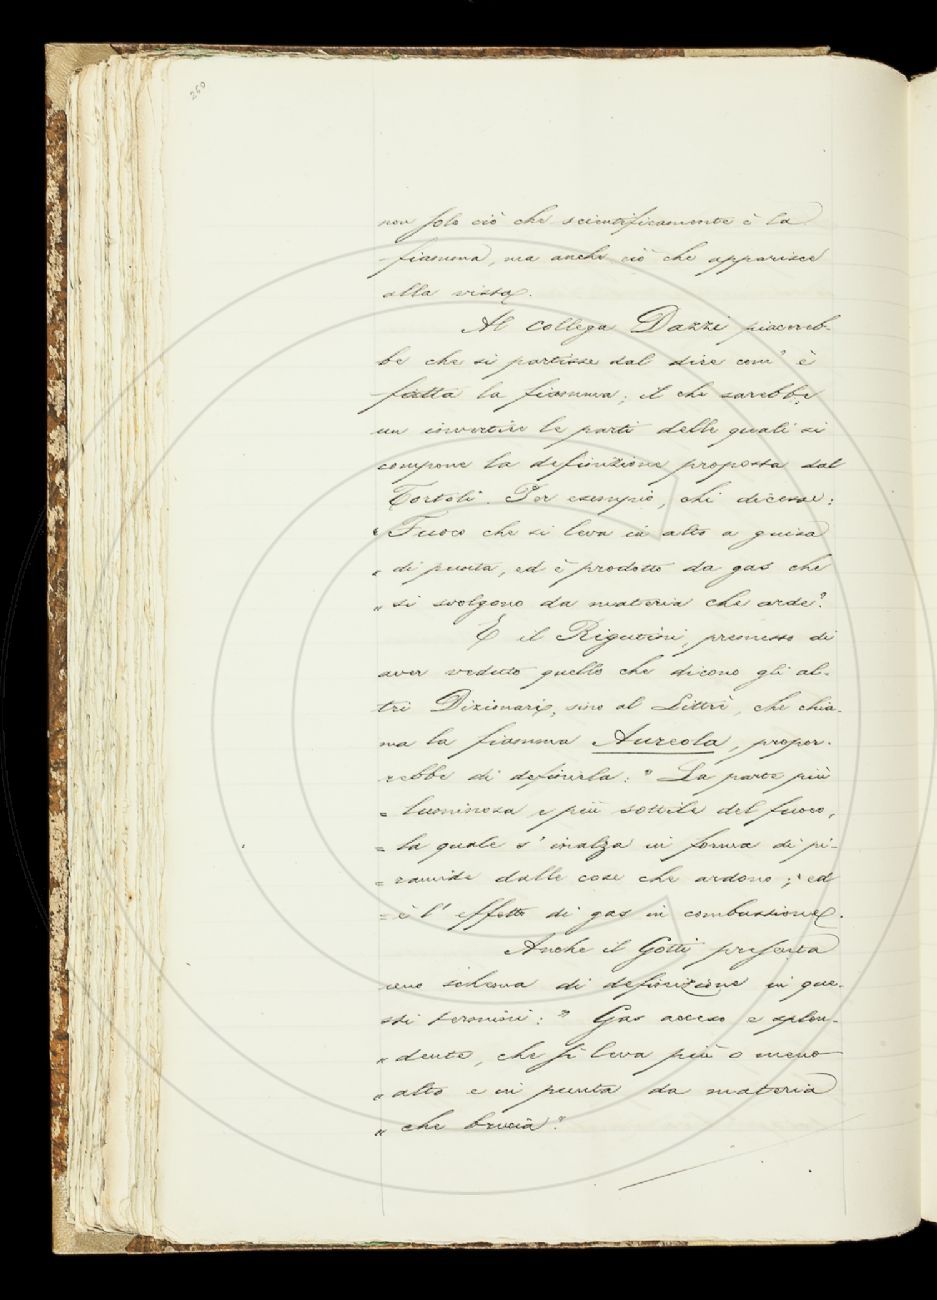 260
non solo ciò che scientificamente è la
fiamma, ma anche ciò che apparisce
alla vista.
Al collega Dazzi piacereb-
be che si partisse dal dire com' è
fatta la fiamma; il che sarebbe
un invertire le parti delle quali si
compone la definizione proposta dal
Tortoli. Per esempio, chi dicesse:
"Fuoco che si leva in alto a guisa
" di punta, ed è prodotto da gas che
" si svolgono da materia che arde".
E il Rigutini, premesso di
aver veduto quello che dicono gli al-
tri Dizionari, sino al Littrè, che chia-
ma la fiamma Aureola, propor-
rebbe di definirla: " La parte più
" luminosa e più sottile del fuoco,
" la quale s' inalza in forma di pi-
" ramide dalle cose che ardono; ed
" è l' effetto di gas in combustione.
Anche il Gotti presenta
uno schema di definizione in que-
sti termini: " Gas acceso e splen-
" dente, che si leva più o meno
" alto e in punta da materia
" che brucia".